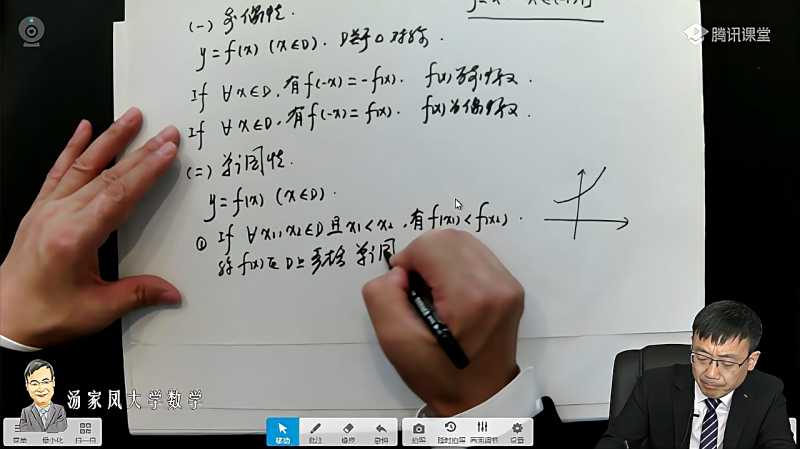 (一) 奇偶性.
y=f(x) (x∈D). D关于0对称.
If ∀x∈D, 有f(-x)=-f(x). f(x)为奇函数.
If ∀x∈D, 有f(-x)=f(x). f(x)为偶函数.
(二) 单调性.
y=f(x) (x∈D).
① If ∀x₁,x₂∈D且x₁<x₂, 有f(x₁)<f(x₂).
称f(x)在D上严格单调
腾讯课堂
汤家凤大学数学
菜单 最小化 扫一扫
移动 批注 擦除 撤销 拍照 延时拍照 画面调节 设置